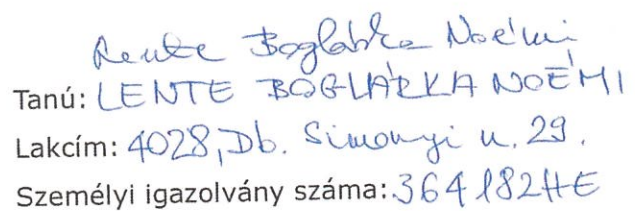 Lente Boglárka Noémi
Tanú: LENTE BOGLÁRKA NOÉMI
Lakcím: 4028, Db. Simonyi u. 29.
Személyi igazolvány száma: 364182HE